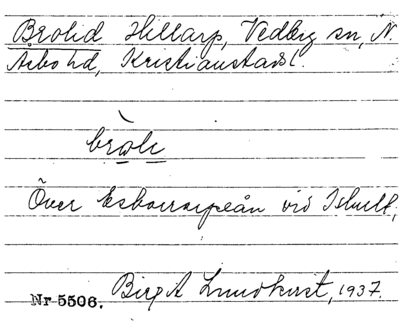 Brolid Hillarp, Vedby sn, N.
Åsbo hd, Kristianstads l.
brò̱li̱
Över Esborrarpeån vid Ishult,
Nr 5506. Birgit Lundkvist, 1937.